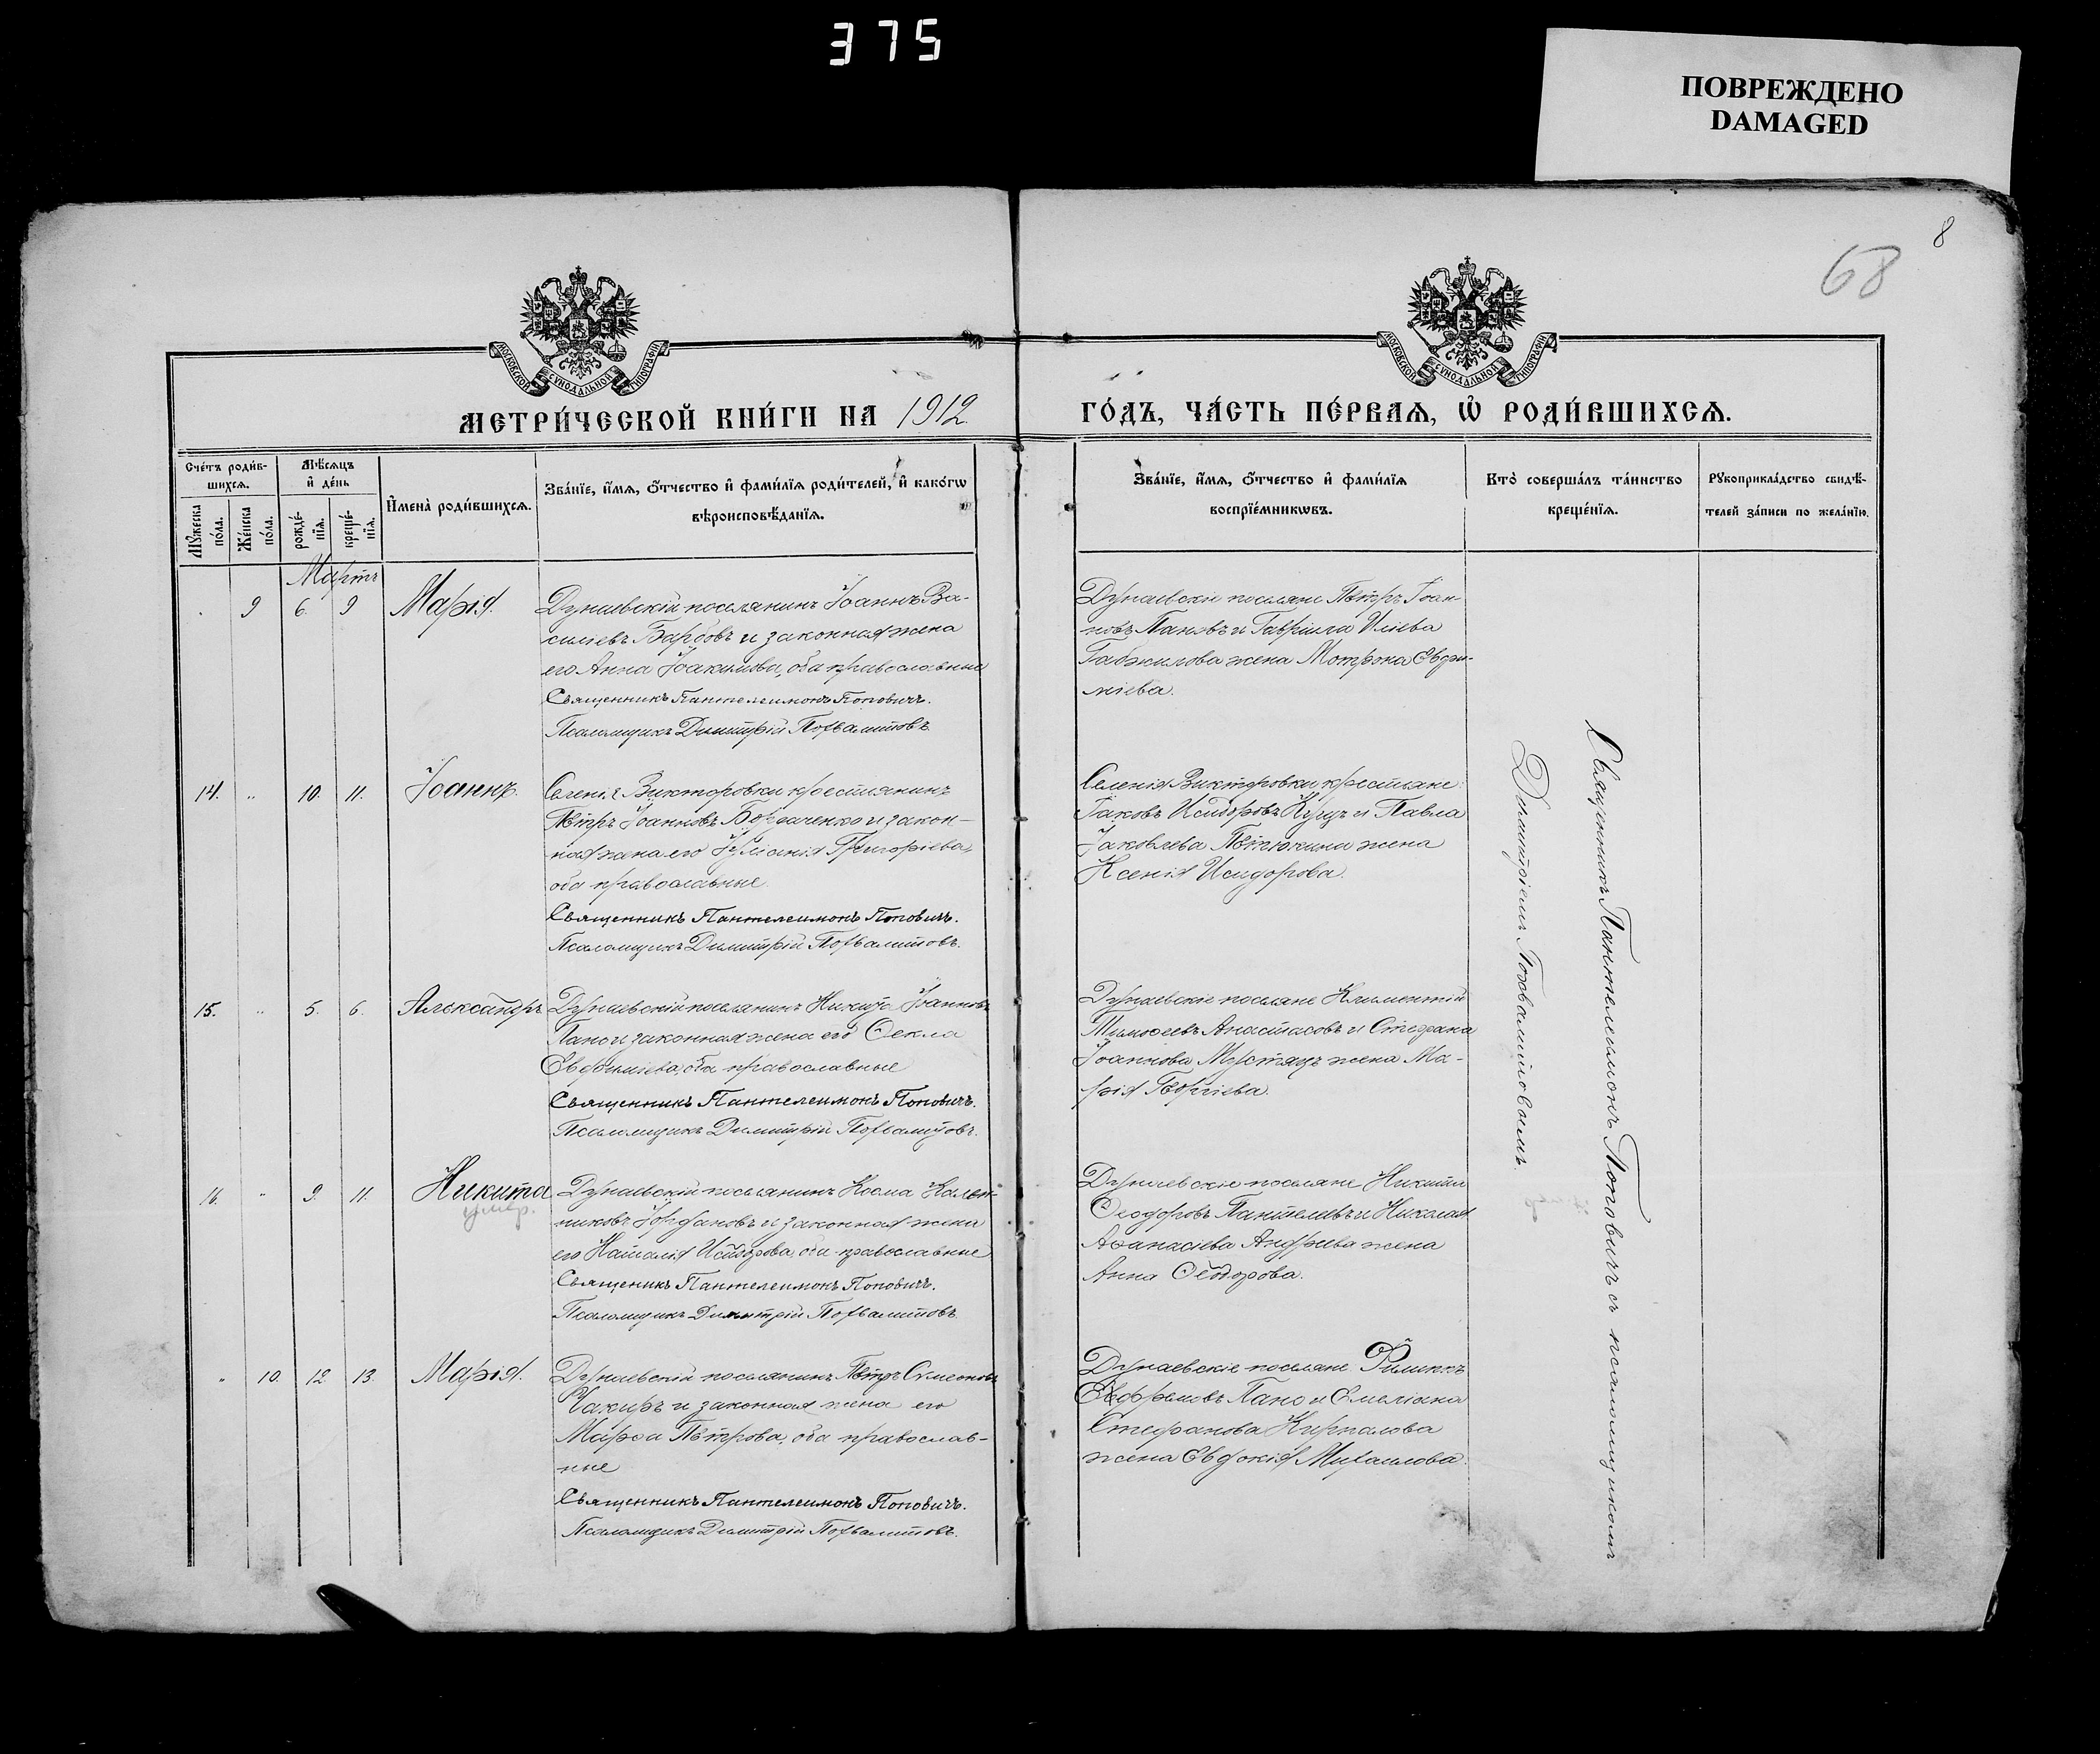 375
ПОВРЕЖДЕНО
DAMAGED
8
68
МОСКОВСКОЙ СѴНОДАЛЬНОЙ ТИПОГРАФІИ
МОСКОВСКОЙ СѴНОДАЛЬНОЙ ТИПОГРАФІИ
МЕТРИ́ЧЕСКОЙ КНИ́ГИ НА 1912
ГО́ДЪ, ЧА́СТЬ ПЕ́РВАѦ, Ѡ҆ РОДИ́ВШИХСѦ.
Сче́тъ роди́в-
шихсѧ.
Мꙋ́жеска по́ла.
Же́нска по́ла.
Мѣ́сѧцъ
и҆ де́нь
рожде́-
нїѧ.
креще́-
нїѧ.
И҆мена̀ роди́вшихсѧ.
Зва́нїе, и҆́мѧ, ѻ҆́тчество и҆ фами́лїѧ роди́телей, и҆ како́гѡ
вѣроисповѣ́данїѧ.
Зва́нїе, и҆́мѧ, ѻ҆́тчество и҆ фами́лїѧ
воспрїе́мникѡвъ.
Кто̀ соверша́лъ та́инство
креще́нїѧ.
Рꙋкоприкла́дство свидѣ́-
телей за́писи по жела́нїю.
Мартъ
9 6. 9 Марія. Дунаевскій поселянинъ Іоаннъ Ва-
силіевъ Барбовъ и законная жена
его Анна Іоакимова, оба православные
Священникъ Пантелеимонъ Поповичъ.
Псаломщикъ Димитрій Похвалитовъ
Дунаевскіе поселяне Пѣтръ Іоан-
новъ Пановъ и Гавріила Иліева
жена Мотрона Евфи-
міева.
14. " 10. 11. Іоаннъ. Селенія Викторовки крестьянинъ
Пѣтръ Іоанновъ Бордаченко и закон-
ная жена его Іуліанія Григоріева,
оба православные.
Священникъ Пантелеимонъ Поповичъ.
Псаломщикъ Димитрій Похвалитовъ.
Селенія Викторовки крестьяне:
Іаковъ Исидоровъ Куцъ и Павла
Іаковлева жена
Ксенія Исидорова.
15. " 5. 6. Александръ Дунаевскій поселянинъ Никита Іоанновъ
Пано и законная жена его Ѳекла
Евфиміева, оба православные
Священникъ Пантелеимонъ Поповичъ.
Псаломщикъ Димитрій Похвалитовъ.
Дунаевскіе поселяне Климентій
Тимоѳеевъ Анастасовъ и Стефана
Іоаннова жена Ма-
рія Георгіева.
16. " 9. 11. Никита Дунаевскій поселянинъ Косма Калин-
никовъ Іордановъ и законная жена
умер.
его Наталія Исидорова, оба православные
Священикъ Пантелеимонъ Поповичъ.
Псаломщикъ Димитрій Похвалитовъ.
Дунаевскіе поселяне Никита
Ѳеодоровъ Пантелевъ и Николая
Аѳанасіева Андреева жена
Анна Ѳеодорова.
" 10. 12. 13. Марія. Дунаевскій поселянинъ Пѣтръ Сѵмеоновъ
Чакиръ и законная жена его
Марѳа Пѣтрова, оба православ-
ные
Священникъ Пантелеимонъ Поповичъ.
Псаломщикъ Димитрій Похвалитовъ.
Дунаевскіе поселяне Филиппъ
Евфремовъ Пано и Емеліана
Стефанова
жена Евдокія Михаилова.
Священникъ Пантелеимонъ Поповичъ съ псаломщикомъ
Димитріемъ Похвалитовымъ.